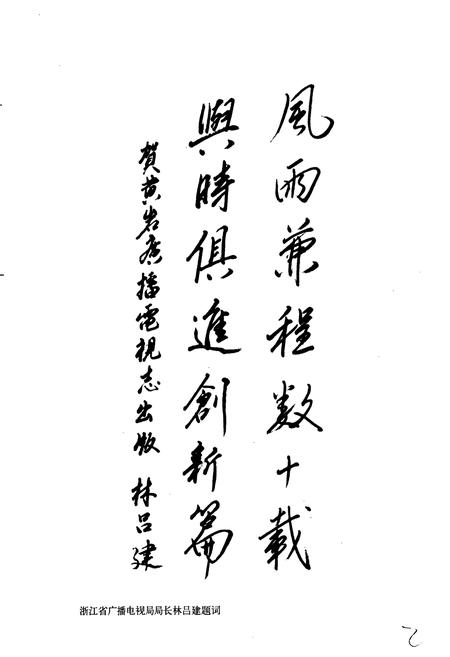 風雨兼程数十載
與時俱進創新篇
賀黄岩廣播電視志出版 林吕建
浙江省广播电视局局长林吕建题词